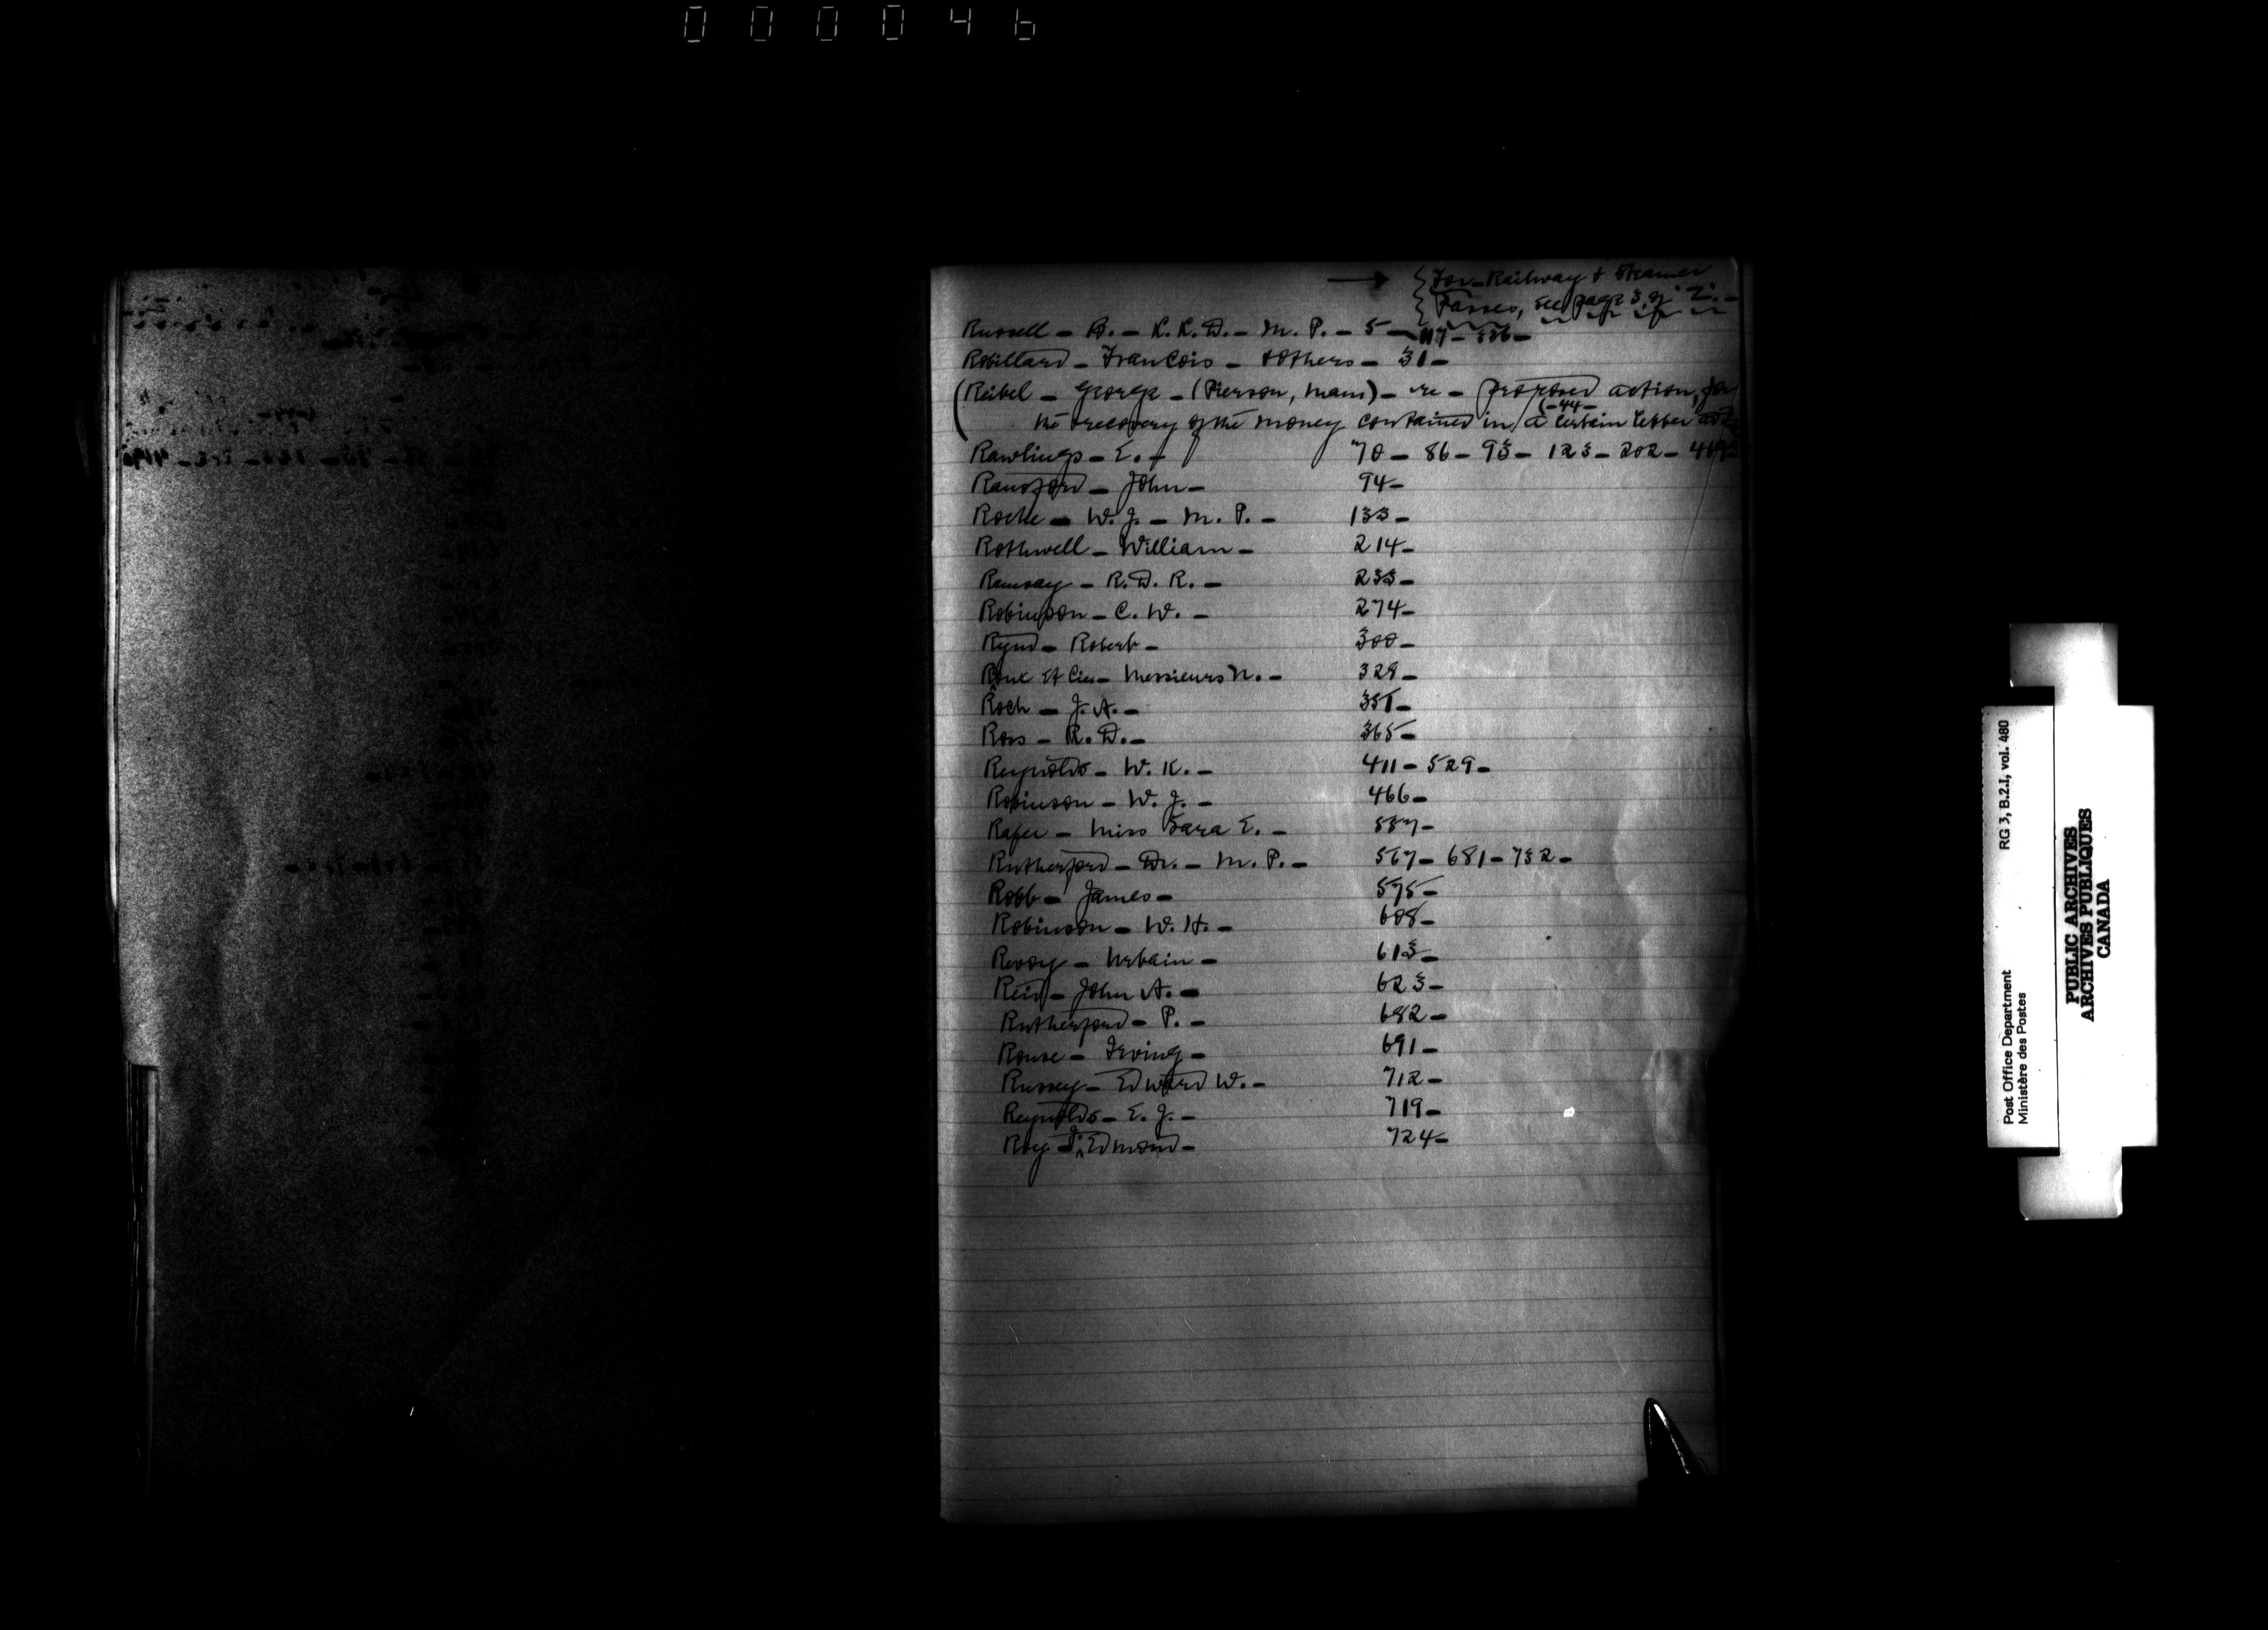 000046
→ { For Railway & Steamer
{ Passes, see page 3 of "Z". –
Russell – B. – K.K.D. – M.P. – 5 – 117 – 336 –
Robillard – Francois – & Others – 31 –
(Reibel – George – (Pierson, Man) – re – proposed action, for
(– 44 –
the recovery of the money contained in a certain letter
Rawlings – E. – 70 – 86 – 93 – 123 – 202 – 469 –
Ransford – John – 94 –
Roche – W. J. – M. P. – 133 –
Rothwell – William – 214 –
Ramsay – R. D. R. – 233 –
Robinson – C. W. – 274 –
Rynd – Robert – 300 –
Roux et Cie – Messieurs N. – 329 –
Roch – J. A. – 351 –
Ross – R. D. – 365 –
Reynolds – W. K. – 411 – 529 –
Robinson – W. J. – 466 –
Rafee – Miss Sara E. – 557 –
Rutherford – Dr. – M. P. – 567 – 681 – 732 –
Robb – James – 575 –
Robinson – W. H. – 608 –
Revoy – Urbain – 613 –
Reid – John A. – 623 –
Rutherford – P. – 682 –
Rouse – Irving – 691 –
Russey – Edward W. – 712 –
Reynolds – E. J. – 719 –
Roy – J. Edmond – 724 –
Post Office Department RG 3, B.2.I, vol. 480
Ministère des Postes
PUBLIC ARCHIVES
ARCHIVES PUBLIQUES
CANADA